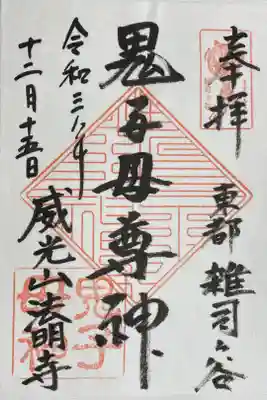 奉拝
東都 雑司ヶ谷
鬼子母尊神
令和三年
十二月十五日
威光山法明寺
鬼子母神